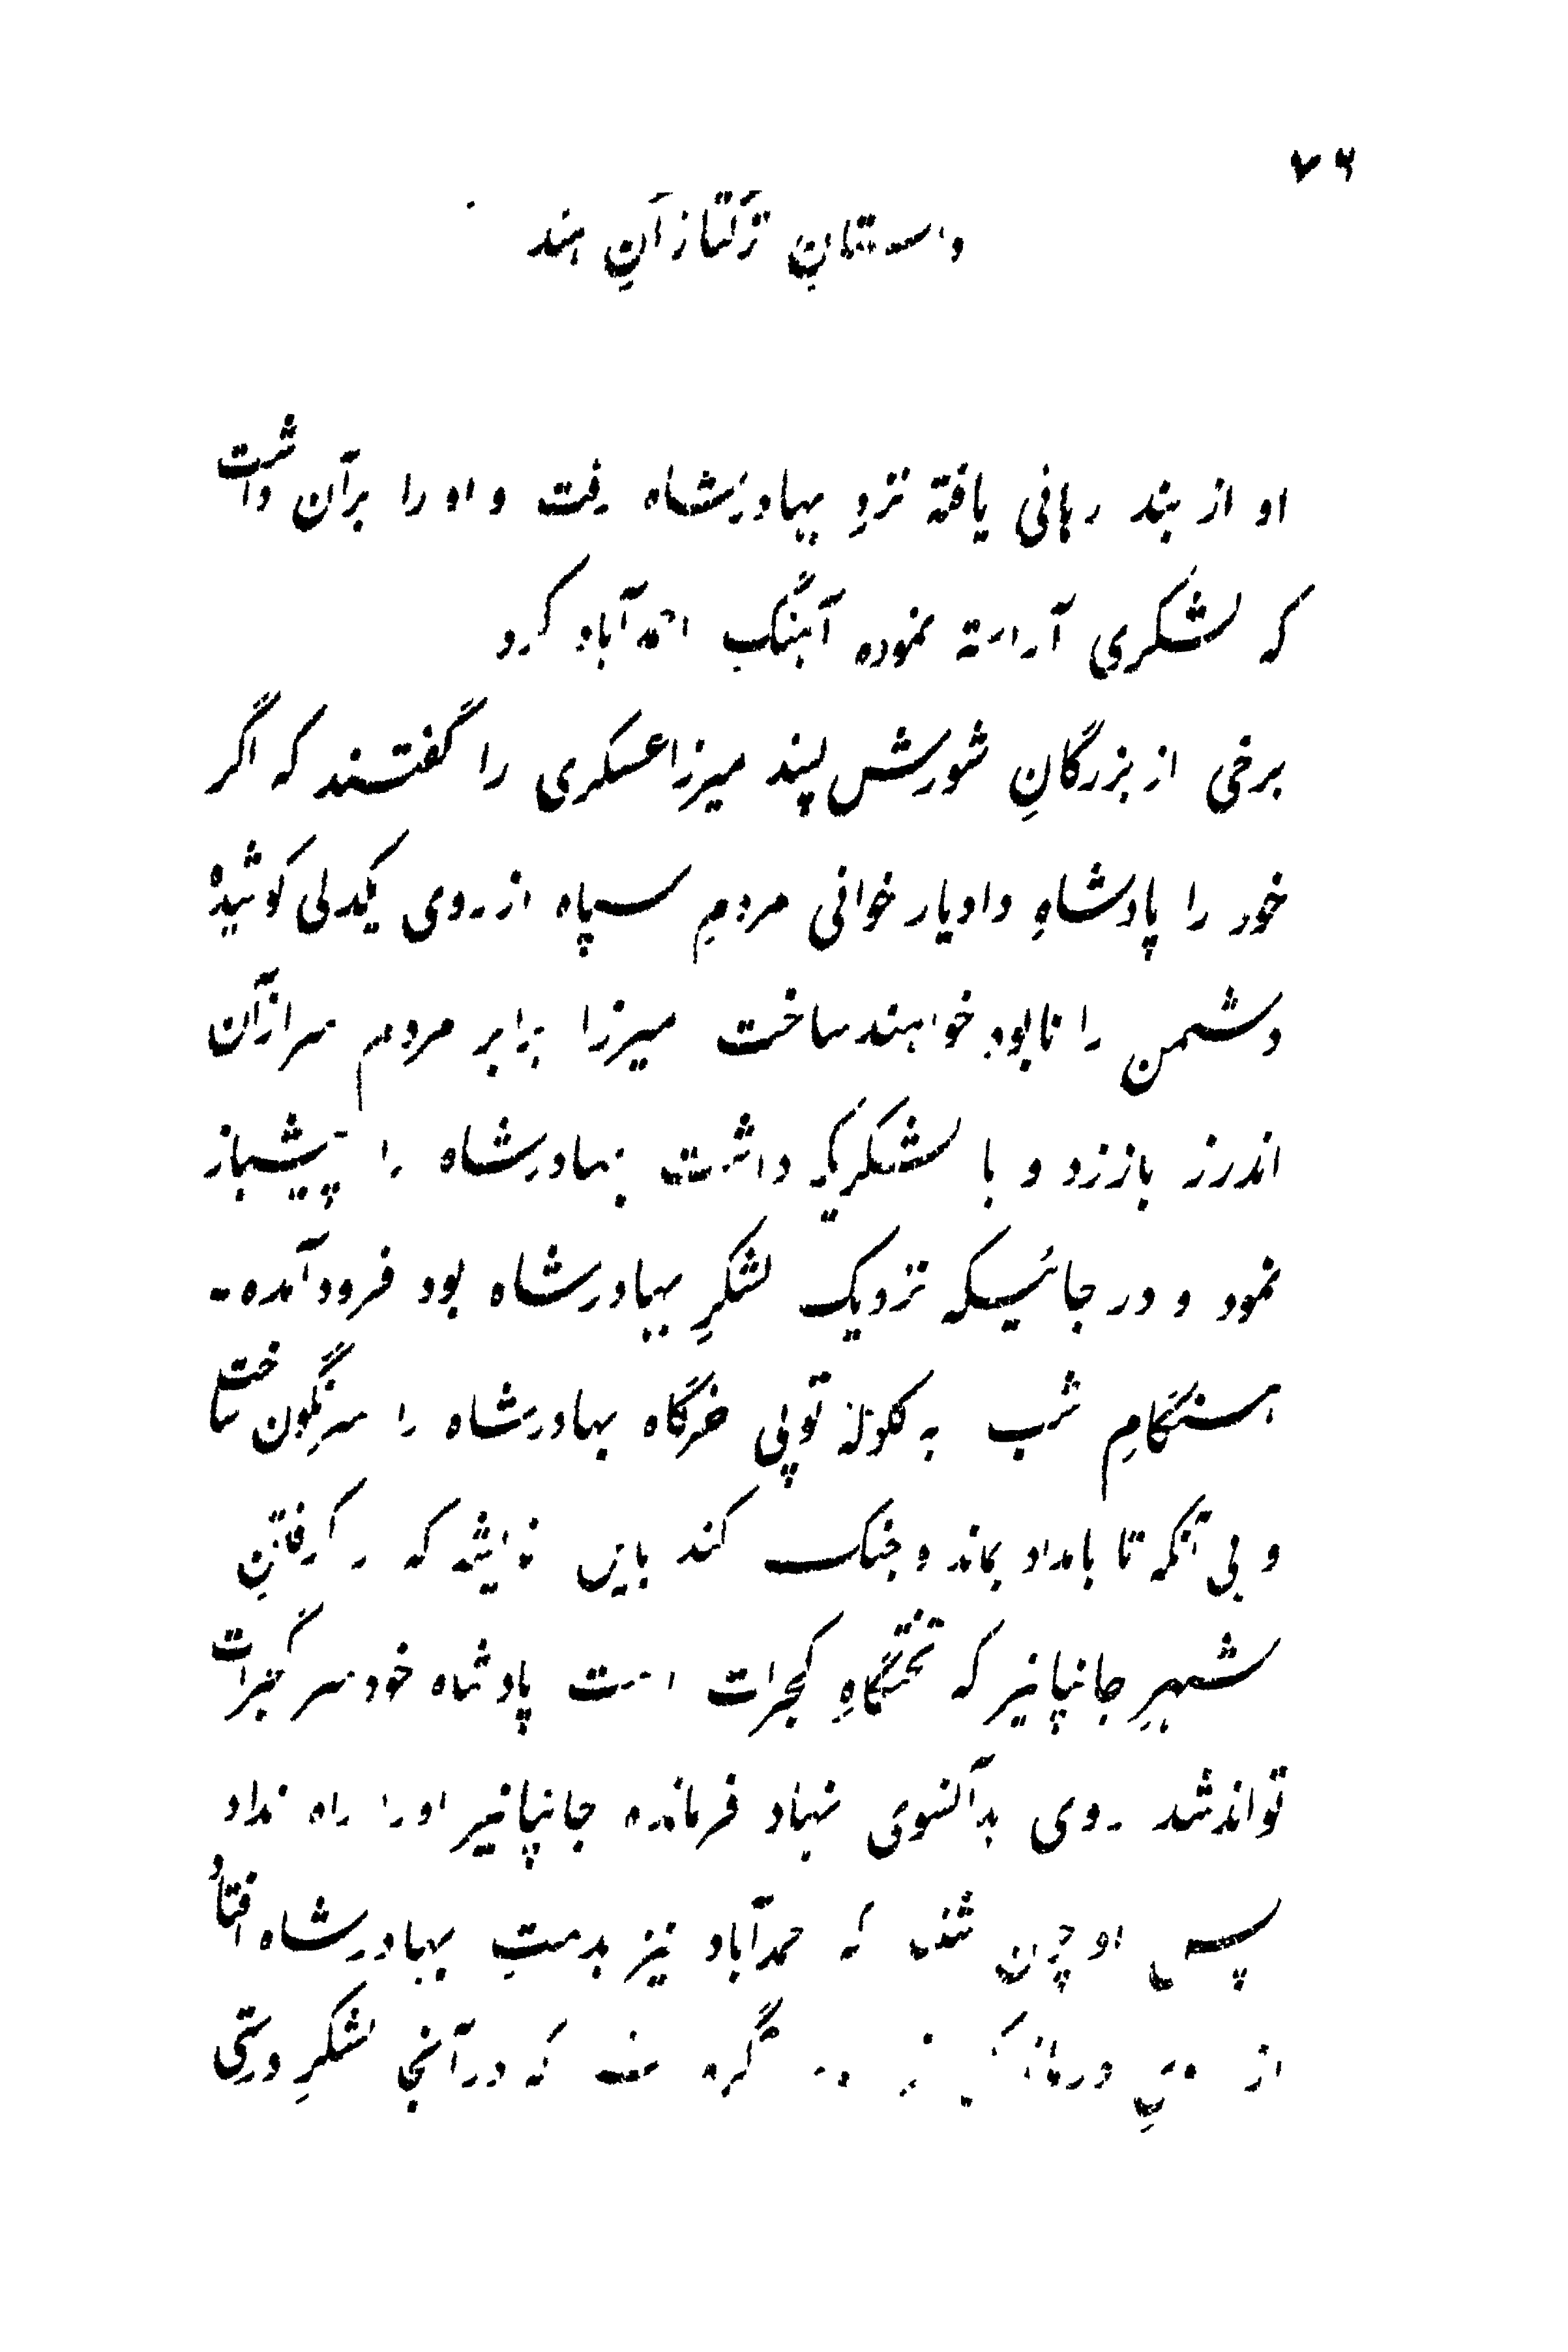 ۷۶
داستانِ تُرکتازانِ هند
او از بند رهائی یافته نزدِ بهادرشاه رفت و او را برآن داشت
که لشکری آراسته نموده آهنگِ احمدآباد کرد
برخی از بزرگانِ شورش پسند میرزا عسکری را گفتند که اگر
خود را پادشاهِ دادیار خوانی مردمِ سپاه از روی یکدلی کوشیده
دشمن را نابود خواهند ساخت میرزا برابر مردم سر از آن
اندرز باز زد و با لشکریکه داشت بهادرشاه را پیشباز
نمود و در جائیکه نزدیک لشکرِ بهادرشاه بود فرود آمده -
هنگامِ شب به گلولهٔ توپی خرگاه بهادرشاه را سرنگون ساخت
و بی آنکه تا بامداد بماند و جنگ کند باین اندیشه که در گرفتنِ
شهرِ جانپانیر که تختگاهِ گجرات است پادشاه خودسر گجرات
تواند شد روی بدآنسوی نهاد فرمانده جانپانیر او را راه نداد
پس او چون شنید که احمدآباد نیز بدستِ بهادرشاه افتاد
از گره که در آنجا لشکرِ درستی